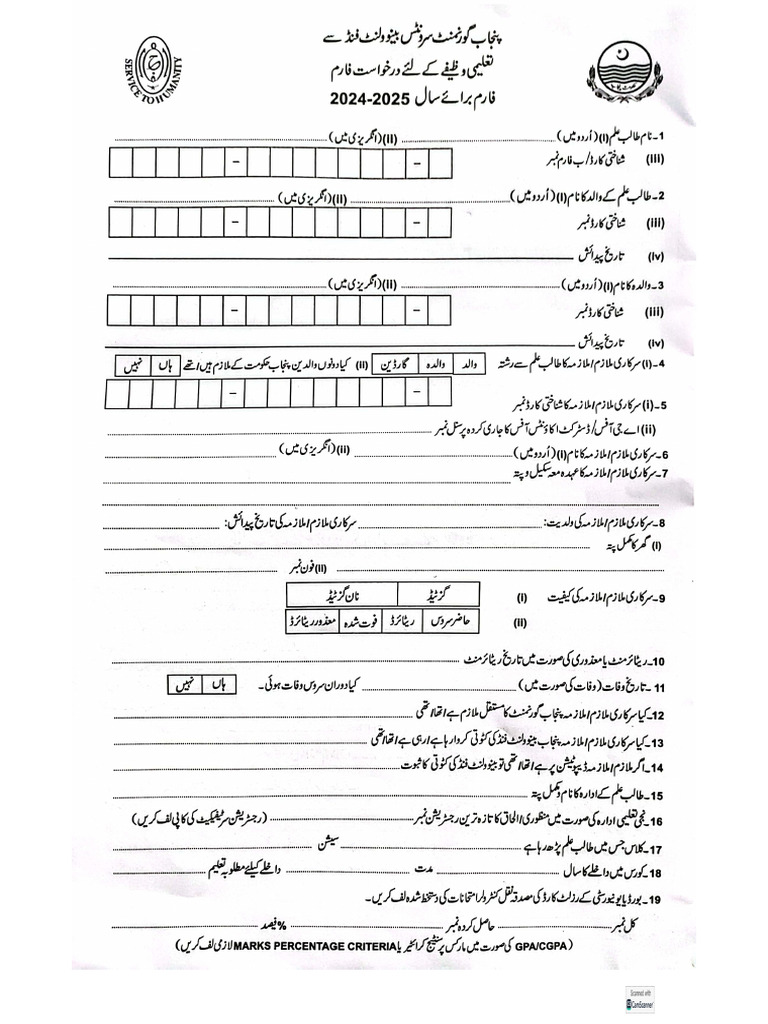 پنجاب گورنمنٹ سرونٹس بینوولنٹ فنڈ سے
تعلیمی وظیفے کے لئے درخواست فارم
فارم برائے سال 2024-2025
SERVICE TO HUMANITY
1۔ نام طالب علم (I) (اُردو میں) (II) (انگریزی میں)
(iii) شناختی کارڈ/ب فارم نمبر
2۔ طالب علم کے والد کا نام (I) (اُردو میں) (II) (انگریزی میں)
(iii) شناختی کارڈ نمبر
(iv) تاریخ پیدائش
3۔ والدہ کا نام (I) (اُردو میں) (II) (انگریزی میں)
(iii) شناختی کارڈ نمبر
(iv) تاریخ پیدائش
4۔ (i) سرکاری ملازم/ملازمہ کا طالب علم سے رشتہ والد والدہ گارڈین (II) کیا دونوں والدین پنجاب حکومت کے ملازم ہیں/تھے ہاں نہیں
5۔ (i) سرکاری ملازم/ملازمہ کا شناختی کارڈ نمبر
(ii) اے جی آفس/ڈسٹرکٹ اکاؤنٹس آفس کا جاری کردہ پرسنل نمبر
6۔ سرکاری ملازم/ملازمہ کا نام (I) (اُردو میں) (ii) (انگریزی میں)
7۔ سرکاری ملازم/ملازمہ کا عہدہ معہ سکیل و پتہ
8۔ سرکاری ملازم/ملازمہ کی ولدیت: سرکاری ملازم/ملازمہ کی تاریخ پیدائش:
(I) گھر کا مکمل پتہ
(II) فون نمبر
9۔ سرکاری ملازم/ملازمہ کی کیفیت (i) گزٹیڈ نان گزٹیڈ
(ii) حاضر سروس ریٹائرڈ فوت شدہ معذور ریٹائرڈ
10۔ ریٹائرمنٹ یا معذوری کی صورت میں تاریخ ریٹائرمنٹ
11۔ تاریخ وفات (وفات کی صورت میں) کیا دوران سروس وفات ہوئی۔ ہاں نہیں
12۔ کیا سرکاری ملازم/ملازمہ پنجاب گورنمنٹ کا مستقل ملازم ہے/تھا/تھی
13۔ کیا سرکاری ملازم/ملازمہ پنجاب بینوولنٹ فنڈ کی کٹوتی کروا رہا ہے/رہی ہے/تھا/تھی
14۔ اگر ملازم/ملازمہ ڈیپوٹیشن پر ہے/تھا/تھی تو بینوولنٹ فنڈ کی کٹوتی کا ثبوت
15۔ طالب علم کے ادارہ کا نام و مکمل پتہ
16۔ نجی تعلیمی ادارہ کی صورت میں منظوری/الحاق کا تازہ ترین رجسٹریشن نمبر (رجسٹریشن سرٹیفیکیٹ کی کاپی لف کریں)
17۔ کلاس جس میں طالب علم پڑھ رہا ہے سیشن
18۔ کورس میں داخلے کا سال مدت داخلے کیلئے مطلوبہ تعلیم
19۔ بورڈ یا یونیورسٹی کے رزلٹ کارڈ کی مصدقہ نقل کنٹرولر امتحانات کی دستخط شدہ لف کریں۔
کل نمبر حاصل کردہ نمبر %فیصد
(GPA/CGPA کی صورت میں مارکس پرسنٹیج کرائٹیریا MARKS PERCENTAGE CRITERIA لازمی لف کریں)
Scanned with
CamScanner